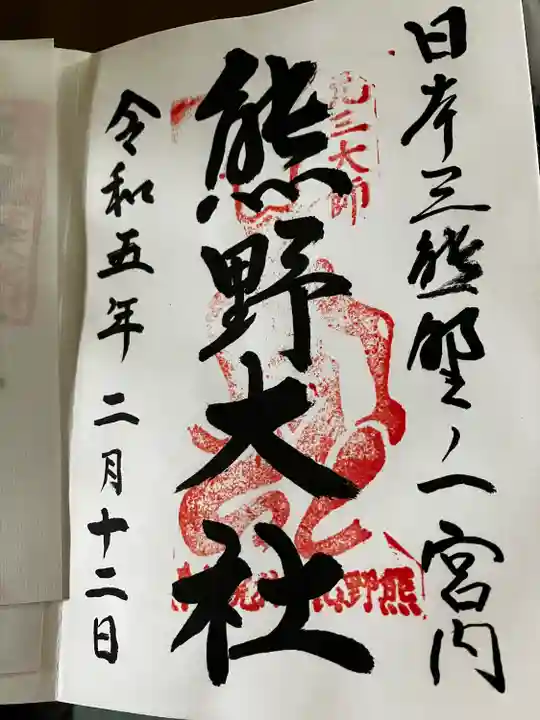 日本三熊野ノ一宮内
元三大師
熊野大社
令和五年二月十二日